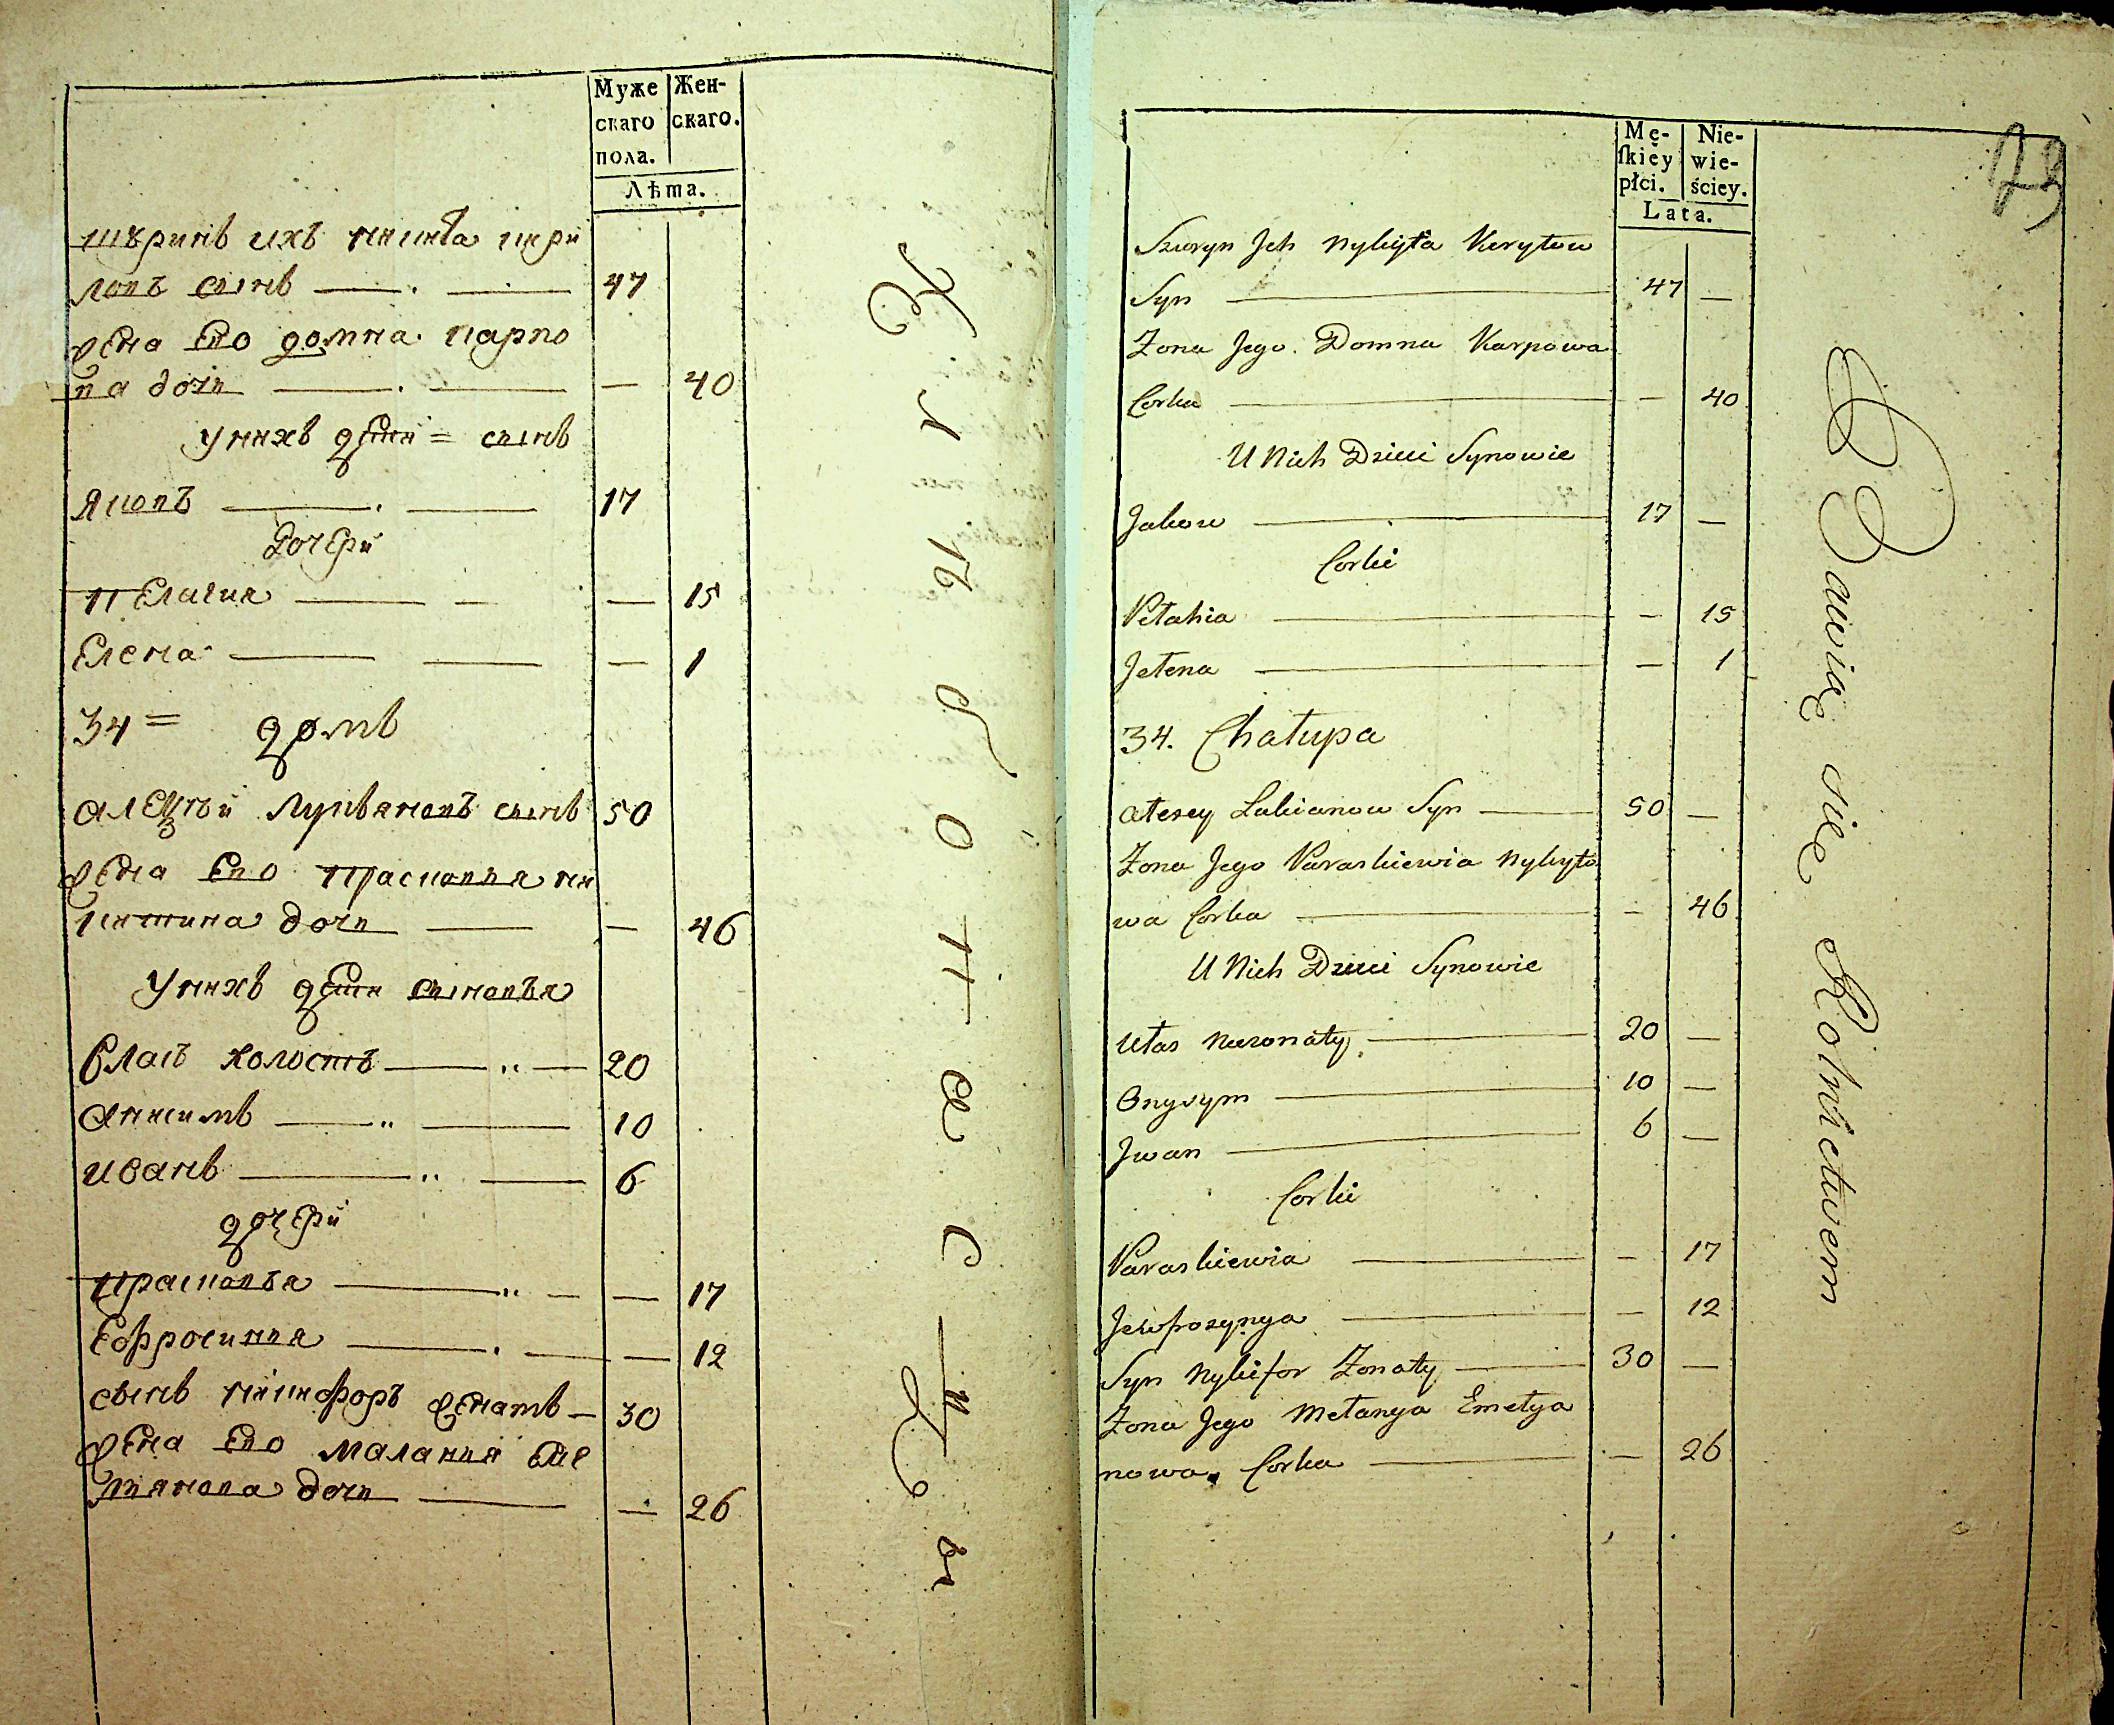 Муже
скаго
пола.
Жен-
скаго.
Лѣта.
шѵринъ ихъ никита кири
ловъ сынъ 47
жена Его домна карпо
ва дочь — 40
У нихъ дѣти = сынъ
яковъ 17
Дочери
пЕлагия — 15
Елена — 1
34 = домъ
алЕѯѣй лукьяновъ сынъ 50
жЕна Его прасковья ни
китина дочь — 46
У нихъ дѣти сыновья
власъ холостъ 20
анисимъ 10
иванъ 6
дочери
прасковья — 17
Ефросинья — 12
сынъ никифоръ жЕнатъ 30
жЕна Его маланья Еме
льянова дочь — 26
Хлѣбопашцы
Mę-
ſkiéy
płci.
Nie-
wie-
ściey.
Lata.
173
Szuryn Jch Nykyta Kerytow
Syn 47 —
Zona Jego Domna Karpowa
Corka — 40
U Nich Dzieci Synowie
Jakow 17 —
Corki
Pelahia — 15
Jelena — 1
34. Chałupa
Alexey Lukianow Syn 50 —
Zona Jego Paraskiewia Nykyto
wa Corka — 46
U Nich Dzieci Synowie
Ułas Niezonaty 20 —
Onysym 10 —
Jwan 6 —
Corki
Paraskiewia — 17
Jewfrozynya — 12
Syn Nykifor Zonaty 30 —
Zona Jego Melanya Emelya
nowa Corka — 26
Bawią się Rolnictwem